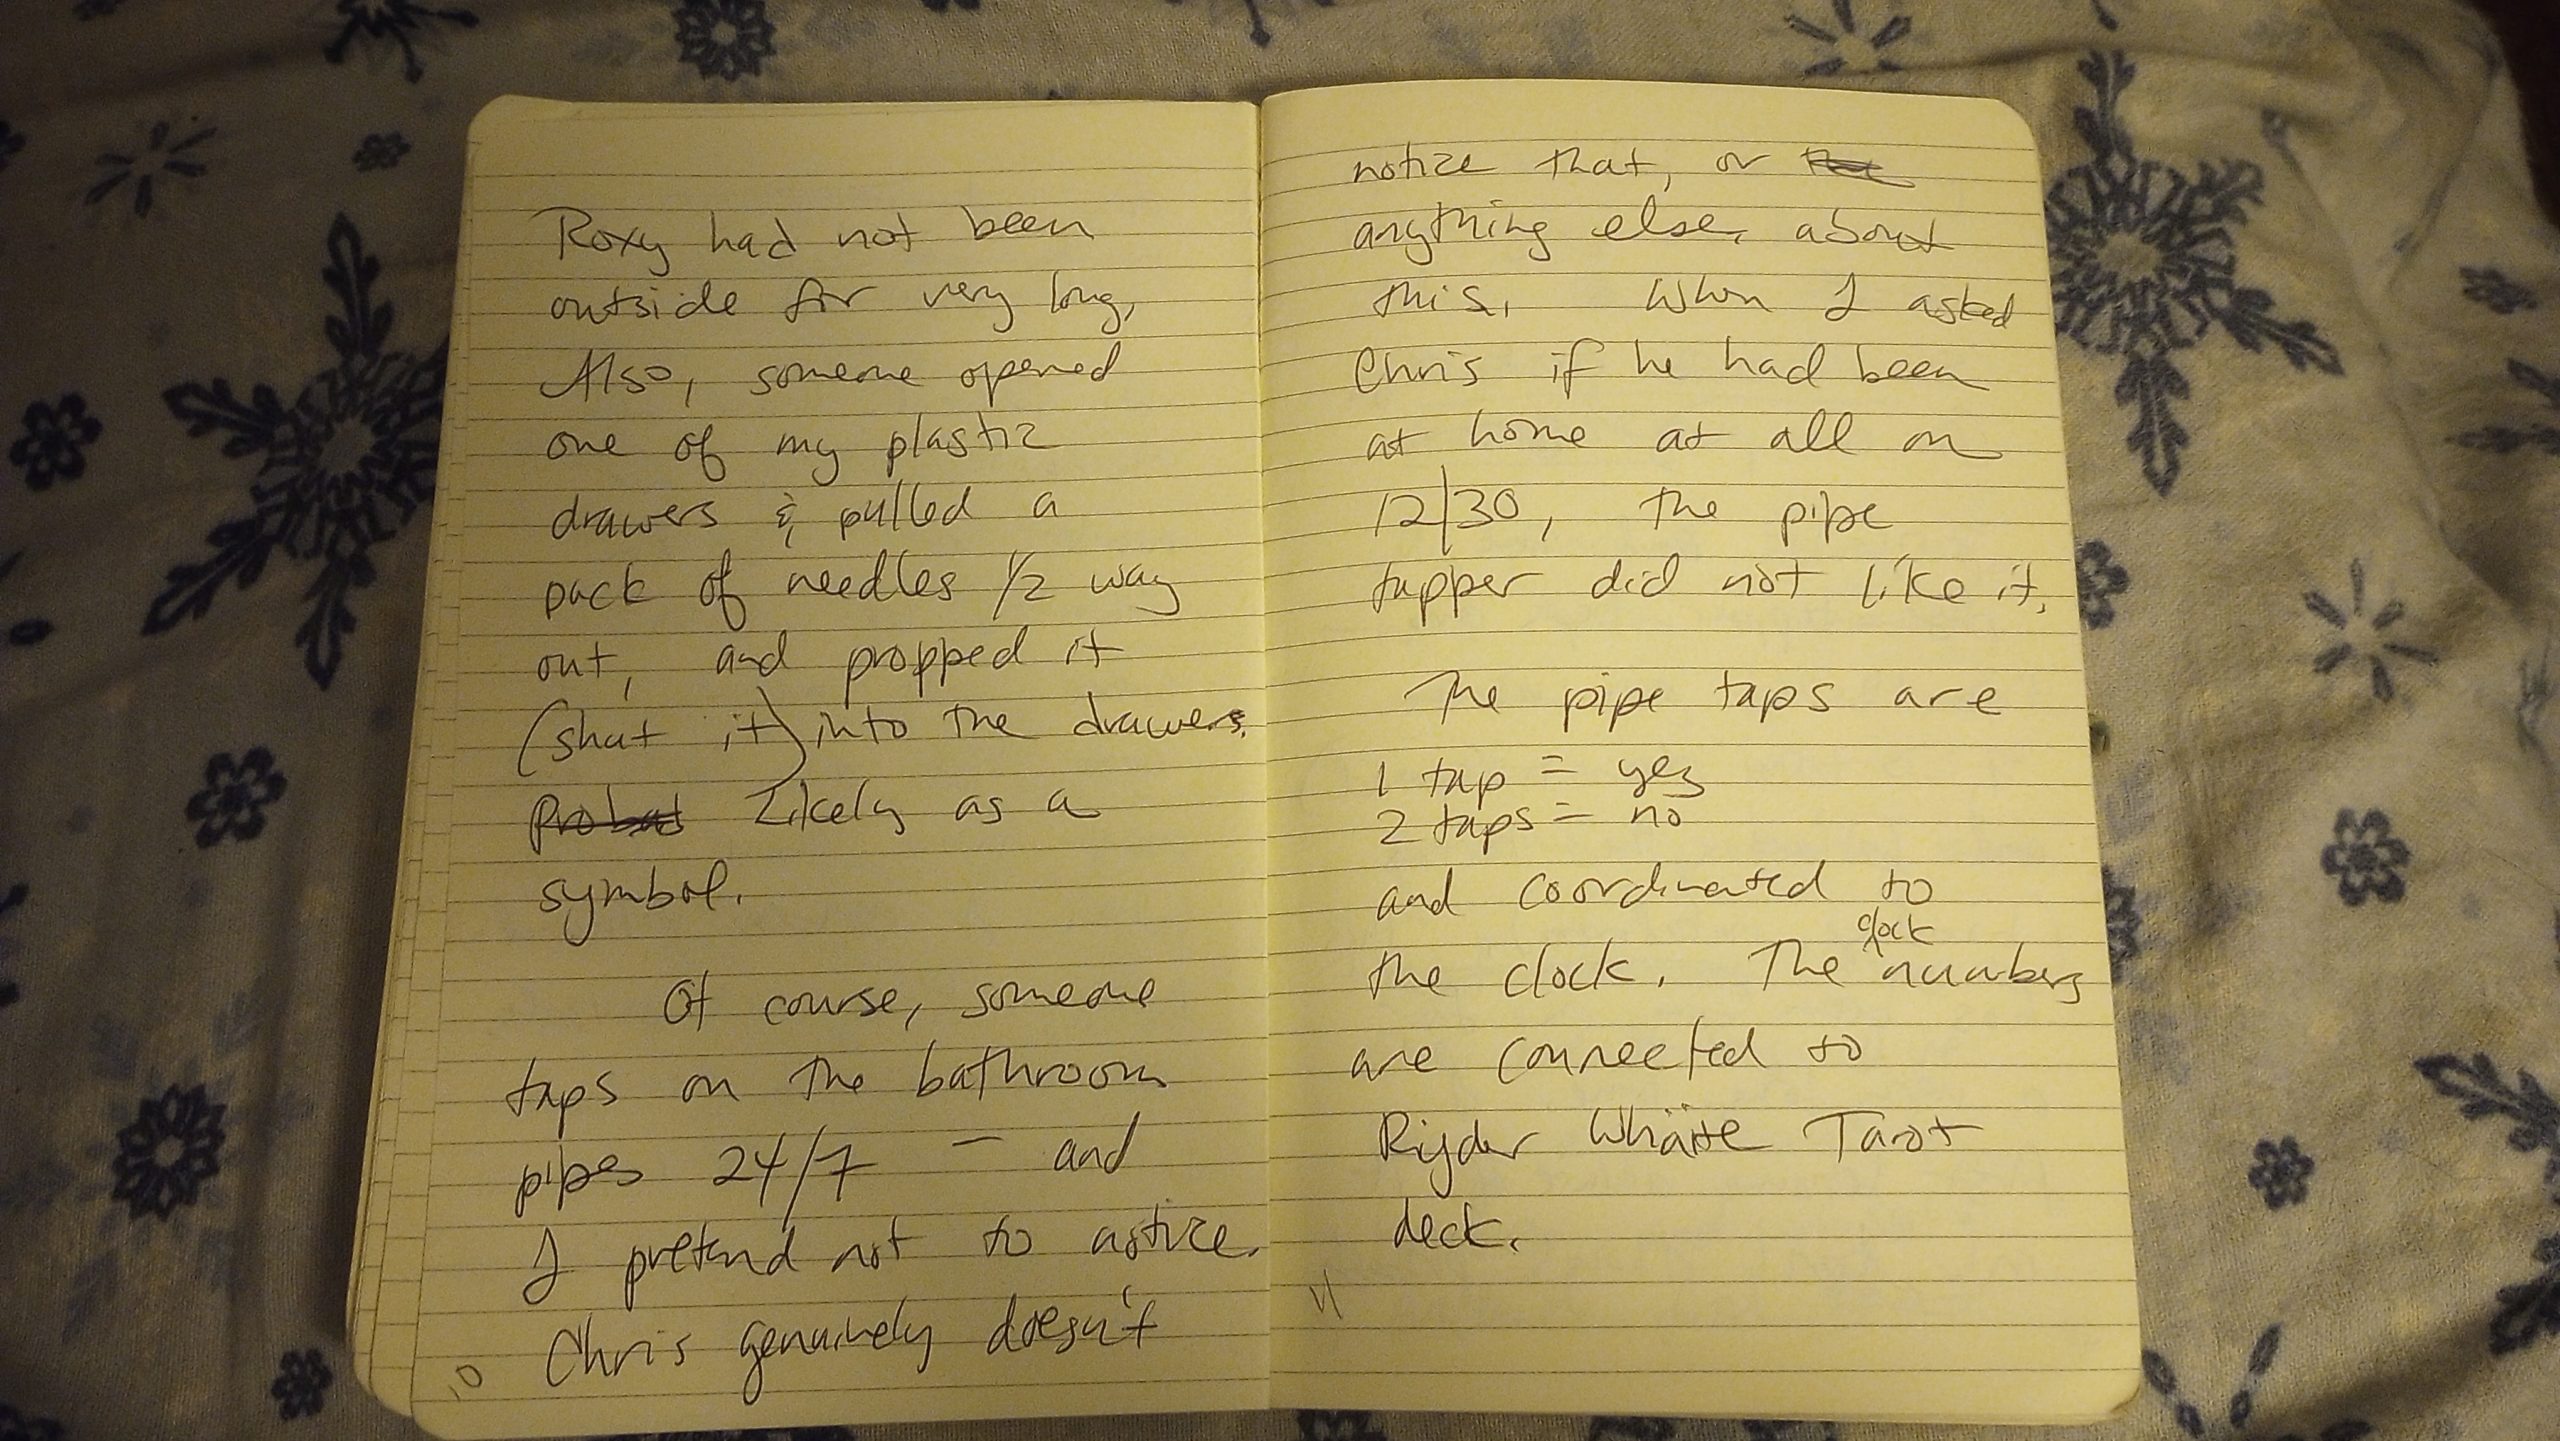 Roxy had not been
outside for very long,
Also, someone opened
one of my plastic
drawers & pulled a
pack of needles 1/2 way
out, and propped it
(shut it) into the drawers.
Probab Likely as a
symbol.
Of course, someone
taps on the bathroom
pipes 24/7 - and
I pretend not to notice.
Chris genuinely doesn't
10
notice that, or the
anything else, about
this. When I asked
Chris if he had been
at home at all on
12/30, the pipe
tapper did not like it.
The pipe taps are
1 tap = yes
2 taps = no
and coordinated to
clock
the clock. The numbers
are connected to
Ryder Whaite Tarot
deck.
11